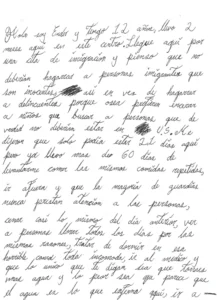 Hola soy Ender y tengo 12 años, llevo 2
meses aquí en este centro. Llegue aquí por
una cita de imigración y pienso que no
deberían agarrar a personas imigrantes que
son inocentes así en vez de agarrar
a delincuentes porque osea prefieren buscar
a niños que buscar a personas que de
verdad no deberían estar en U.S. Me
dijeron que solo podía estar 21 días aquí
pero ya llevo mas de 60 días de
levantarme comer las mismas comidas repetidas,
ir afuera y que la mayoría de guardias
nunca prestan atención a las personas,
cenar casi lo mismo del día anterior, ver
a personas llorar todos los días por las
mismas razones, tratar de dormir en esa
horrible cama toda incomoda, ir al medico y
que lo unico que te digan sea que tomes
mas agua y lo peor es que parece que
el agua es lo que enferma aquí, ir a